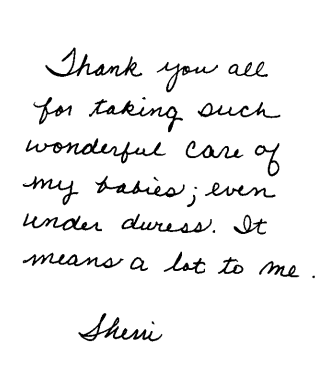 Thank you all
for taking such
wonderful care of
my babies; even
under duress. It
means a lot to me.
Sherri